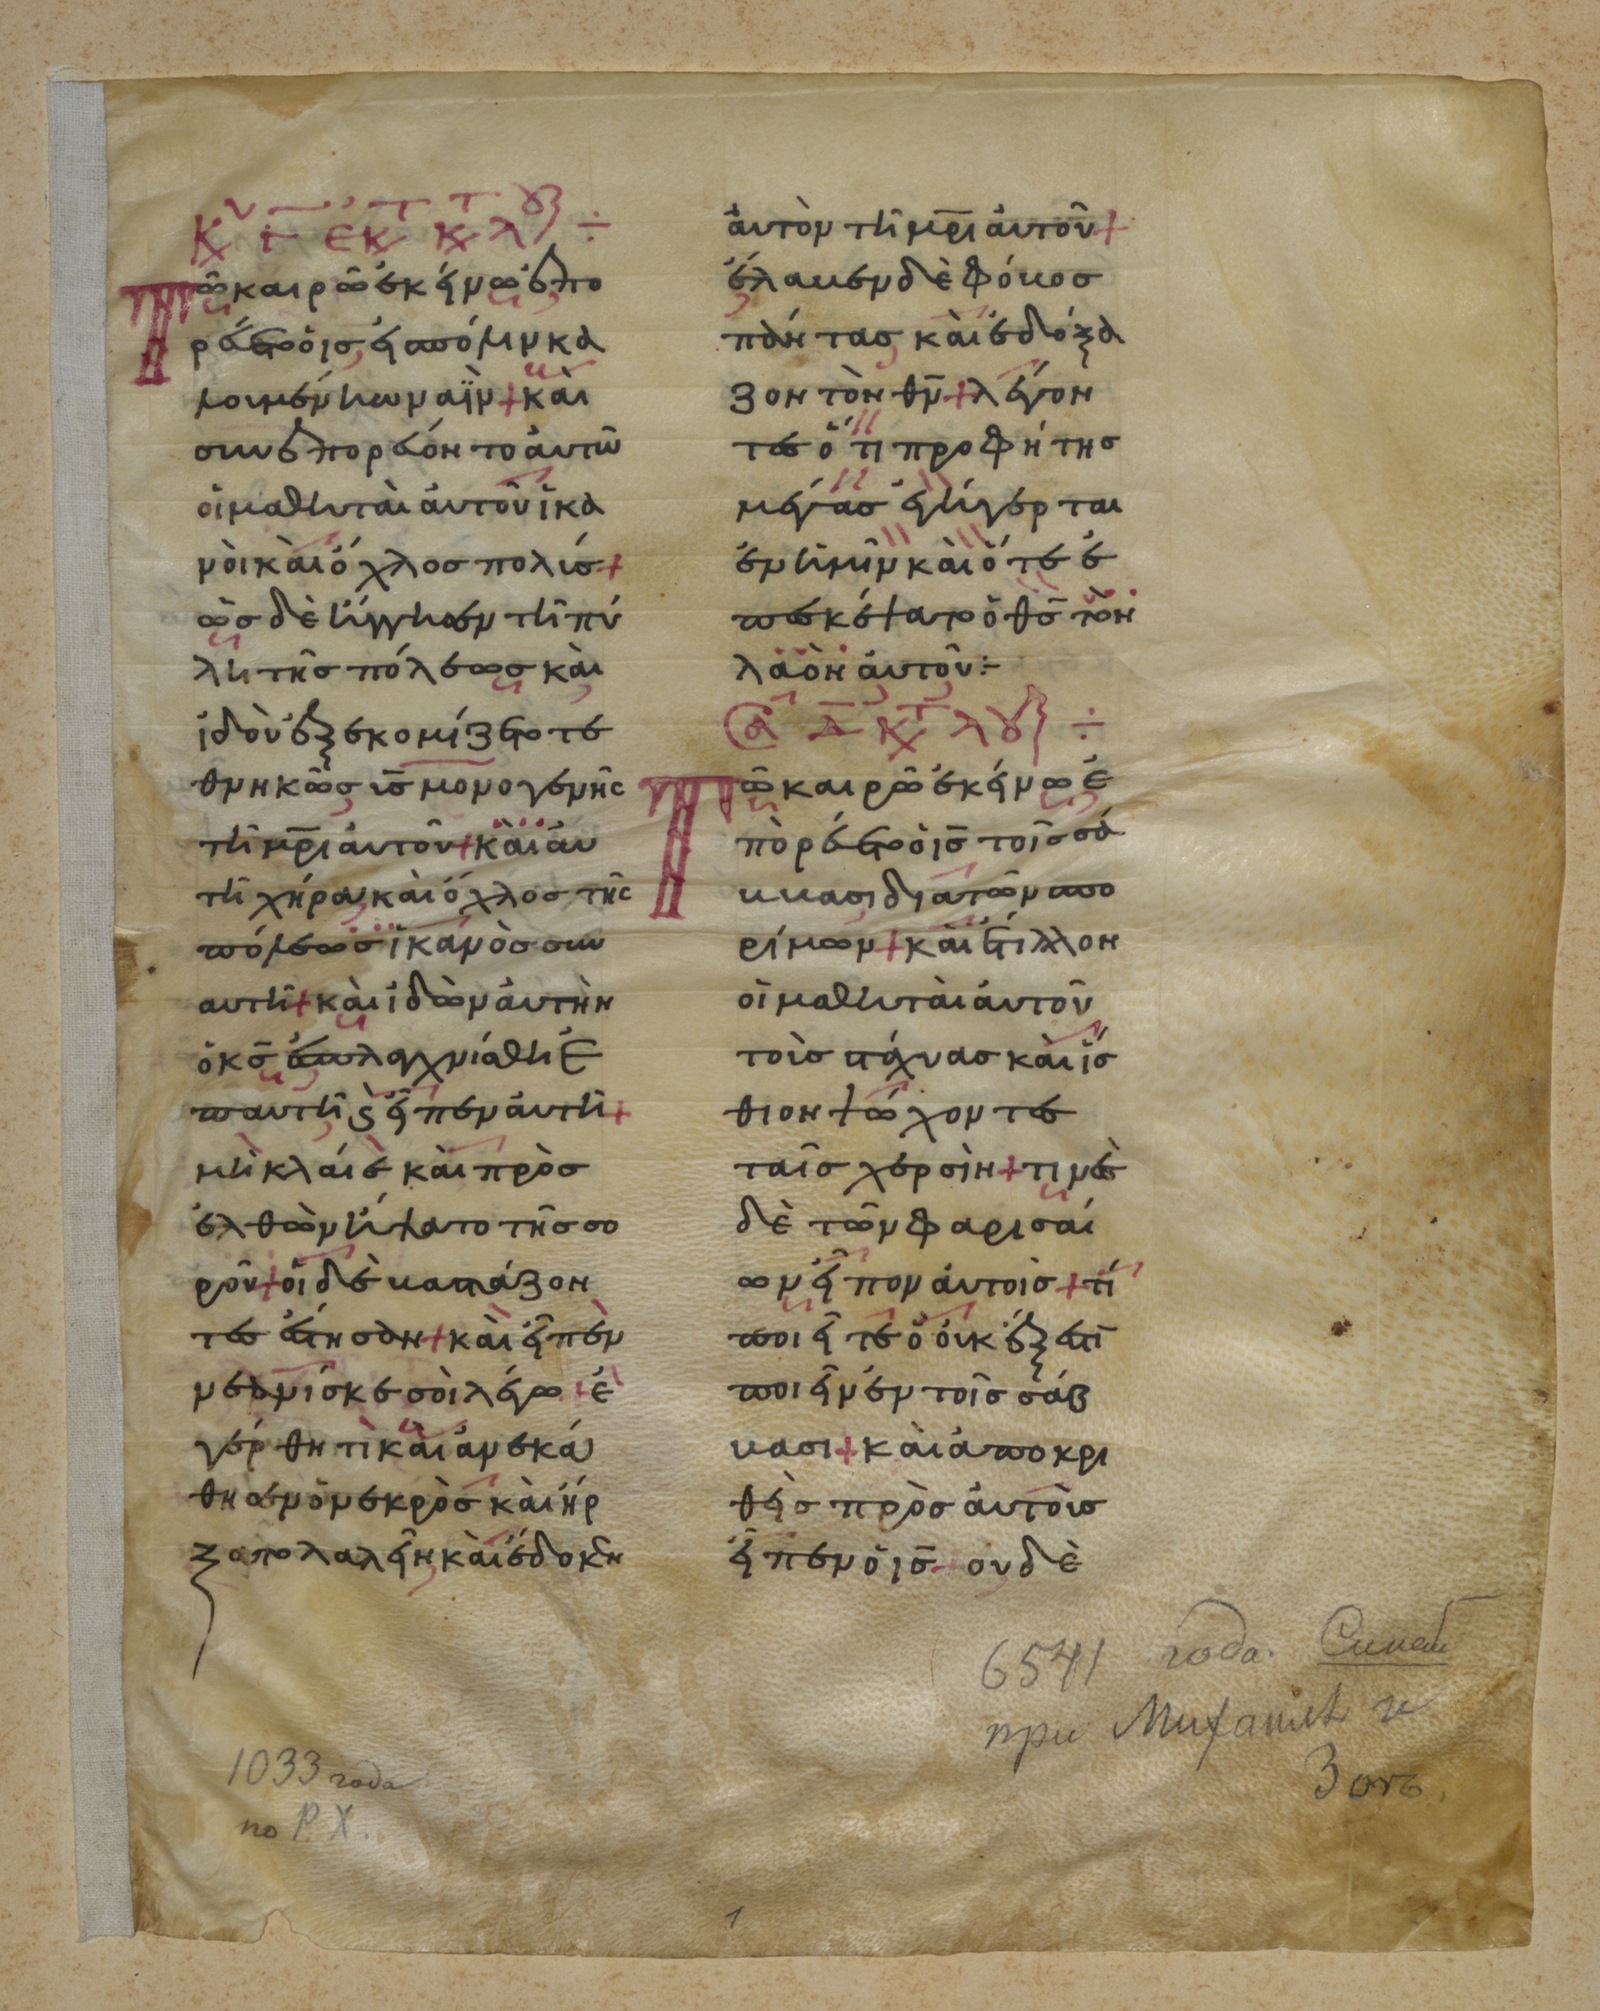 Κυ γ ἐκ τ κτ λου ÷
Τῶ καιρῶ ἐκείνω ἐπο
ρεύετο ὁ ις εἰς πόλιν κα
λουμένην ναΐν + καὶ
συνεπορεύοντο αὐτῶ
οἱ μαθηταὶ αὐτοῦ ἱκα
νοὶ καὶ ὄχλος πολύς +
ὡς δὲ ἤγγισεν τῆ πύ
λη τῆς πόλεως καὶ
ἰδοὺ ἐξεκομίζετο τε
θνηκὼς υς μονογενὴς
τῆ μρι αὐτοῦ + καὶ αὐ
τὴ χήρα καὶ ὄχλος τῆς
πόλεως ἱκανὸς συν
αυτῆ + καὶ ἰδὼν αὐτὴν
ὁ κς ἐσπλαγχνίσθη ἐ
π αυτῆ ϗ εἶπεν αὐτῆ +
μὴ κλαίε καὶ προσ
ελθὼν ἥψατο τῆς σο
ροῦ + οἱ δὲ βαστάζον
τες ἔστησαν + καὶ εἶπεν
νεανίσκε σοὶ λέγω + ἐ
γέρθητι καὶ ἀνεκά
θησεν ὁ νεκρὸς καὶ ἤρ
ξατο λαλεῖν καὶ ἔδωκεν
αὐτὸν τῆ μρι αὐτοῦ +
ἔλαβεν δὲ φόβος
πάντας καὶ ἐδόξα
ζον τὸν θν + λέγον
τες ὅτι προφήτης
μέγας ἐγήγερται
ἐν ἡμῖν καὶ ὅτι ἐ
πεσκέψατο ὁ θς τὸν
λαὸν αὐτοῦ ÷
Σα δ κτ λου ÷
Τῶ καιρῶ ἐκείνω ἐ
πορεύετο ὁ ις τοῖς σά
ββασι διὰ τῶν σπο
ρίμων + καὶ ἔτιλλον
οἱ μαθηταὶ αὐτοῦ
τοὺς στάχυας καὶ ἤσ
θιον ψώχοντες
ταῖς χερσὶν + τινὲς
δὲ τῶν φαρισαί
ων εἶπον αὐτοῖς + τί
ποιεῖτε ὃ οὐκ ἔξεστι
ποιεῖν ἐν τοῖς σάβ
βασι + καὶ ἀποκρι
θεὶς πρὸς αὐτοὺς
εἶπεν ὁ ις + οὐδὲ
6541 года. Синай
при Михаилѣ и
Зоѣ.
1033 года
по Р. Х.
1